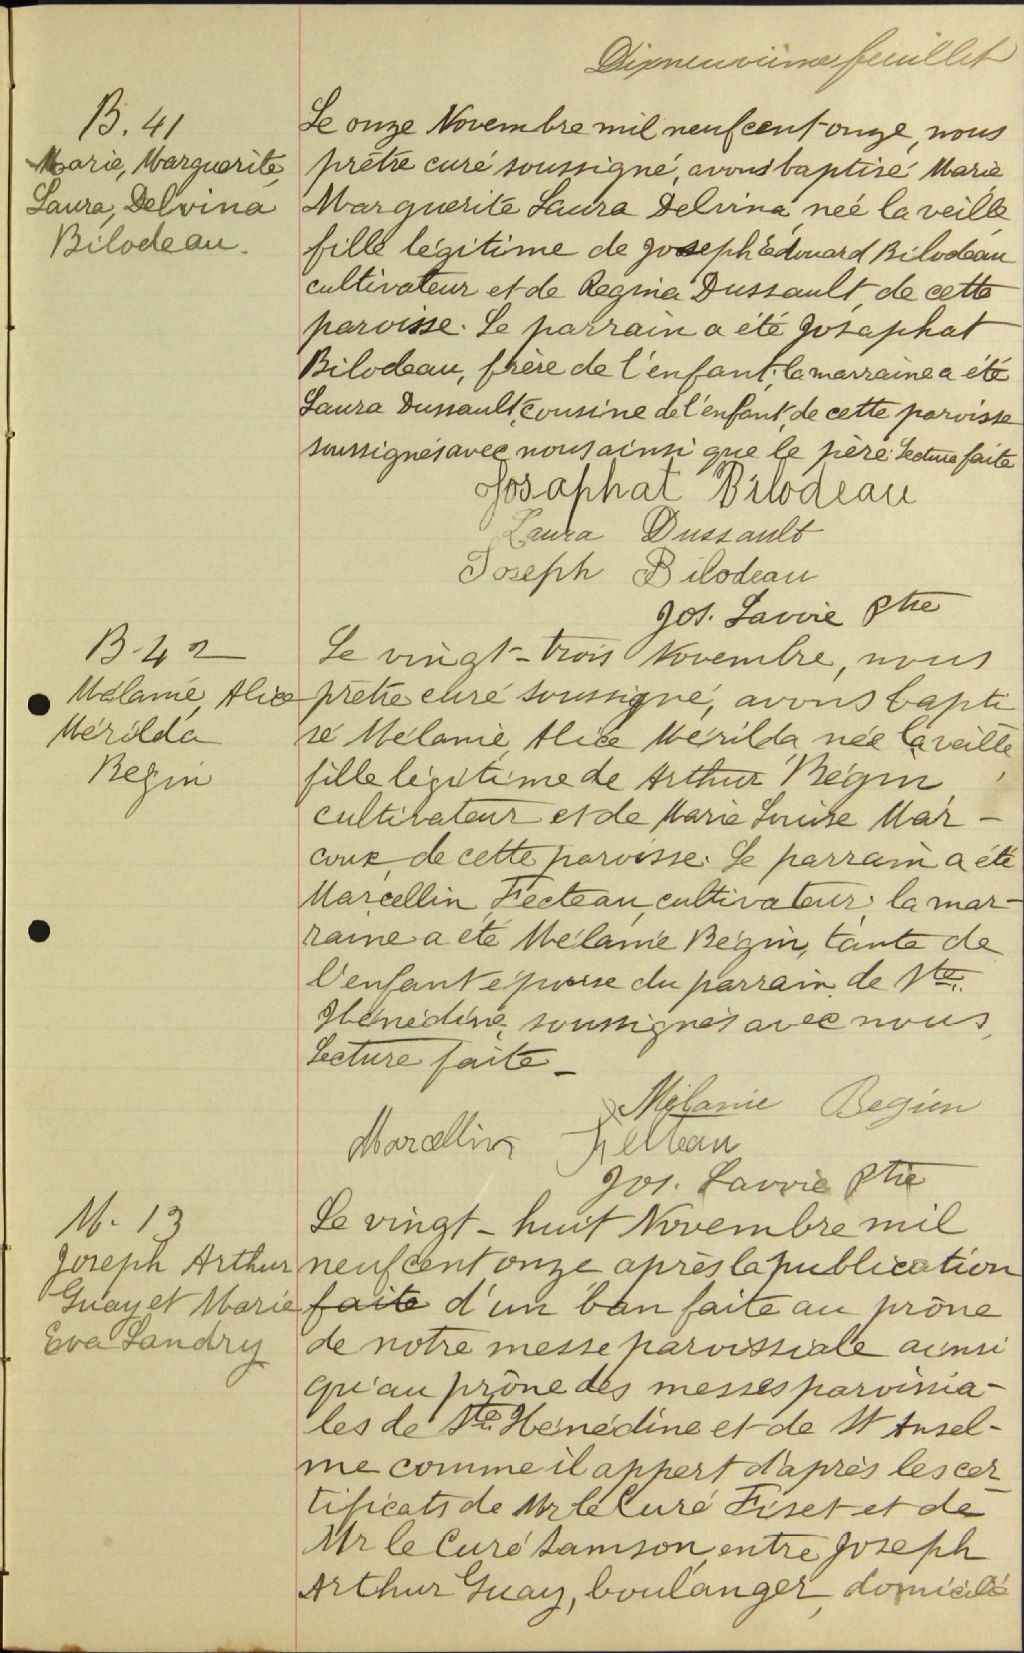 Dixneuvième feuillet
B. 41
Marie, Marguerite,
Laura, Delvina
Bilodeau.
Le onze Novembre mil neuf cent onze, nous
prêtre curé soussigné, avons baptisé Marie
Marguerite Laura Delvina, née la veille
fille légitime de Joseph Edouard Bilodeau
cultivateur et de Regina Dussault, de cette
paroisse. Le parrain a été Josaphat
Bilodeau, frère de l'enfant; la marraine a été
Laura Dussault, cousine de l'enfant, de cette paroisse
soussignés avec nous ainsi que le père. Lecture faite
Josaphat Bilodeau
Laura Dussault
Joseph Bilodeau
Jos. Lavoie Ptre
B. 42
Mélanie, Alice
Mérilda
Begin
Le vingt-trois Novembre, nous
prêtre curé soussigné, avons bapti
sé Mélanie, Alice Mérilda, née la veille,
fille légitime de Arthur Bégin,
cultivateur et de Marie Louise Mar-
coux, de cette paroisse. Le parrain a été
Marcellin Fecteau, cultivateur; la mar-
raine a été Mélanie Bégin, tante de
l'enfant épouse du parrain, de Ste
Hénédine, soussignés avec nous,
Lecture faite_
Mélanie Begien
Marcellin Fecteau
Jos. Lavoie Ptre
M. 13
Joseph Arthur
Guay et Marie
Eva Landry
Le vingt-huit Novembre mil
neuf cent onze, après la publication
faite d'un ban faite au prône
de notre messe paroissiale ainsi
qu'au prône des messes paroissia-
les de Ste Hénédine et de St Ansel-
me comme il appert d'après les cer-
tificats de Mr le Curé Fiset et de
Mr le Curé Samson, entre Joseph
Arthur Guay, boulanger, domicilié